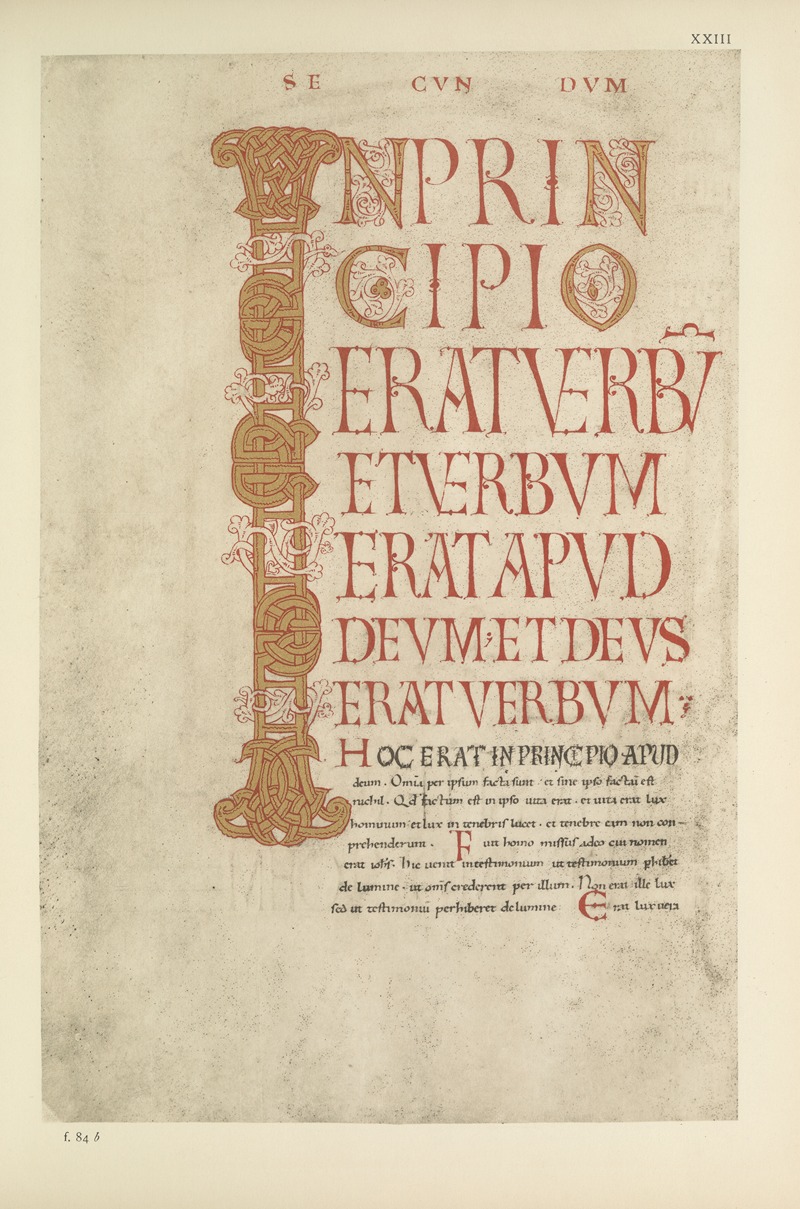 XXIII
SE CVN DVM
INPRIN
CIPIO
ERATVERBṼ
ETVERBVM
ERATAPVD
DEVM·ETDEVS
ERATVERBVM
HOC ERAT IN PRINCIPIO APUD
deum. Omīa per ipsum facta sunt et sine ipso factū est
nichil. Qd factum est in ipso uita erat. et uita erat lux
hominum et lux in tenebris lucet. et tenebre eum non con-
prehenderunt. Fuit homo missus adeo cui nomen
erat iohs. hic uenit intestimonium ut testimonium phibet
de lumine. ut oms crederent per illum. Non erat ille lux
sed ut testimoniū perhiberet delumine Erat lux uera
f. 84 b